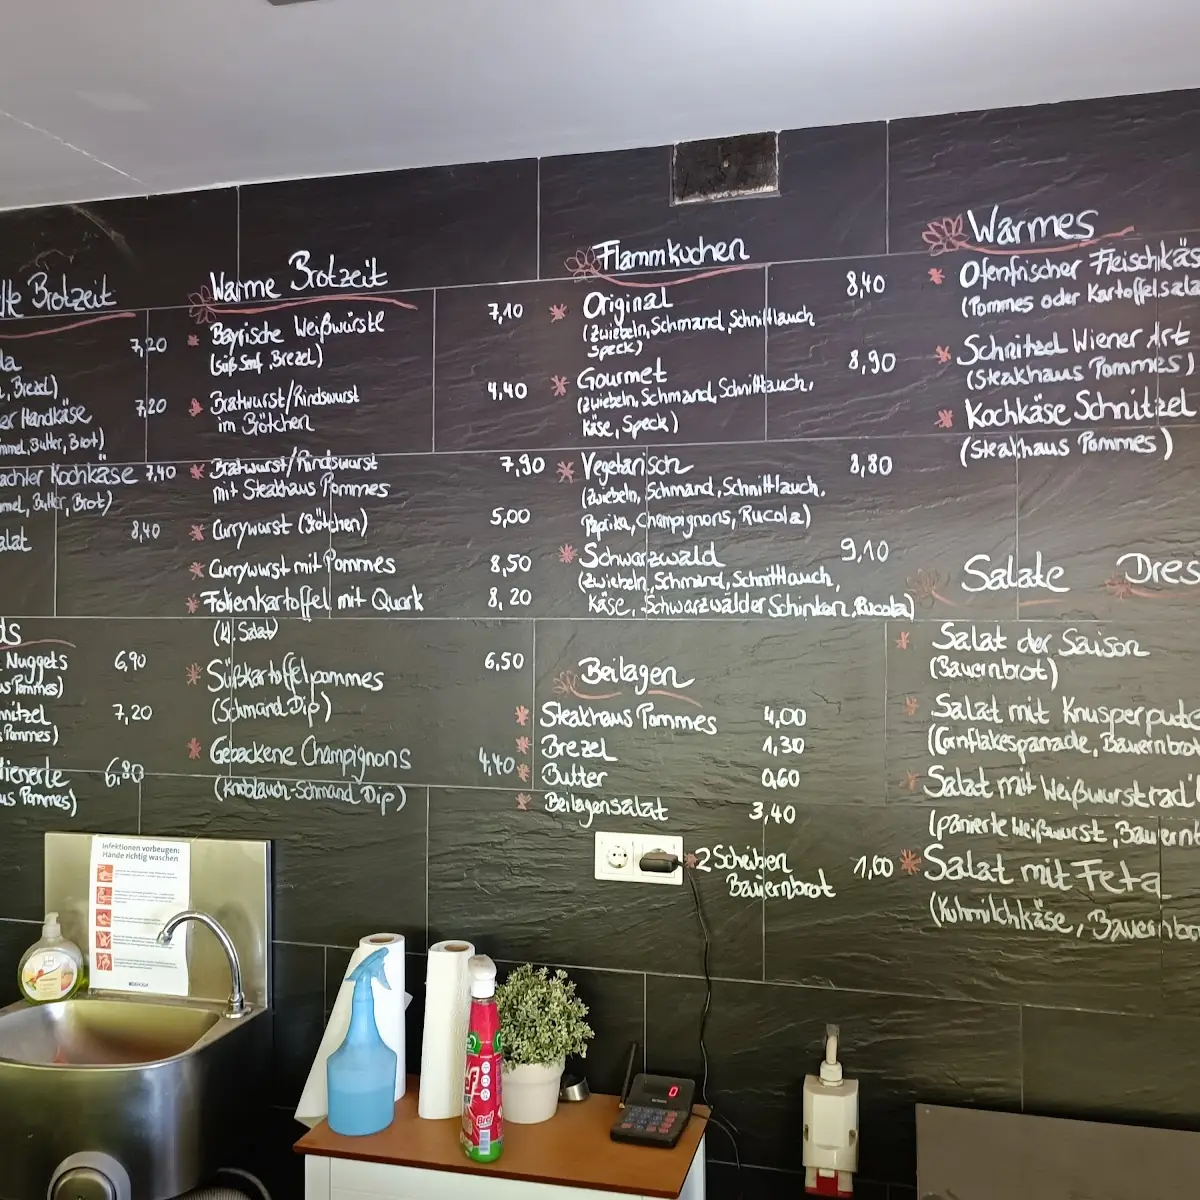 Brotzeit
7,20
Brezel)
7,20
Handkäse
Butter, Brot)
Kochkäse 7,40
Butter, Brot)
8,40
Nuggets 6,90
Pommes)
7,20
Pommes)
6,80
Pommes)
Warme Brotzeit
Bayrische Weißwürste 7,10
(süß Senf, Brezel)
Bratwurst/Rindswurst 4,40
im Brötchen
Bratwurst/Rindswurst 7,90
mit Steakhaus Pommes
Currywurst (Brötchen) 5,00
Currywurst mit Pommes 8,50
Folienkartoffel mit Quark 8,20
(kl. Salat)
Süßkartoffelpommes 6,50
(Schmand Dip)
Gebackene Champignons 4,40
(Knoblauch-Schmand Dip)
Flammkuchen
Original 8,40
(Zwiebeln, Schmand, Schnittlauch
Speck)
Gourmet 8,90
(Zwiebeln, Schmand, Schnittlauch,
Käse, Speck)
Vegetarisch 8,80
(Zwiebeln, Schmand, Schnittlauch,
Paprika, Champignons, Rucola)
Schwarzwald 9,10
(Zwiebeln, Schmand, Schnittlauch,
Käse, Schwarzwälder Schinken, Rucola)
Beilagen
Steakhaus Pommes 4,00
Brezel 1,30
Butter 0,60
Beilagensalat 3,40
2 Scheiben 1,00
Bauernbrot
Warmes
Ofenfrischer Fleischkäs
(Pommes oder Kartoffelsala
Schnitzel Wiener Art
(Steakhaus Pommes)
Kochkäse Schnitzel
(Steakhaus Pommes)
Salate Dres
Salat der Saison
(Bauernbrot)
Salat mit Knusperpute
(Cornflakespanade, Bauernbrot
Salat mit Weißwurstradl
(panierte Weißwurst, Bauern
Salat mit Feta
(Kuhmilchkäse, Bauernbro
Infektionen vorbeugen:
Hände richtig waschen
Bref
0